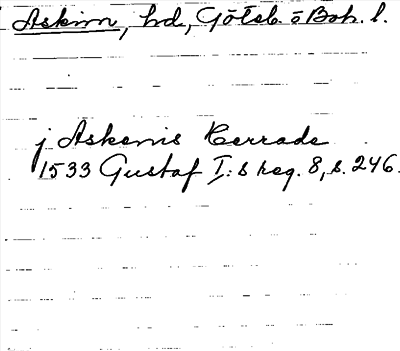 Askim, hd, Göteb. o Boh. l.
j Askenis Herrade
1533 Gustaf I:s reg. 8, s. 246.